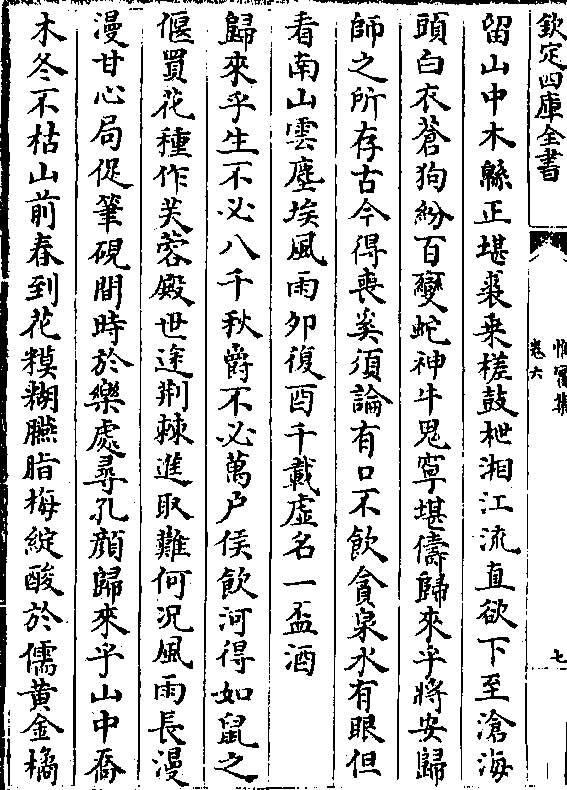 欽定四庫全書
卷六
七
留山中木緜正堪裘乗槎鼓枻湘江流直欲下至滄海
頭白衣蒼狗紛百變蛇神牛鬼寧堪儔歸來乎將安歸
師之所存古今得喪奚須論有口不飲貪泉水有眼但
看南山雲塵埃風雨夘復酉千載虚名一盃酒
歸來乎生不必八千秋爵不必萬户侯飲河得如鼠之
偃買花種作芙蓉殿世途荆棘進取難何况風雨長漫
漫甘心局促筆硯間時於樂處尋孔顔歸來乎山中喬
木冬不枯山前春到花糢糊臙脂梅綻酸於儒黄金橘